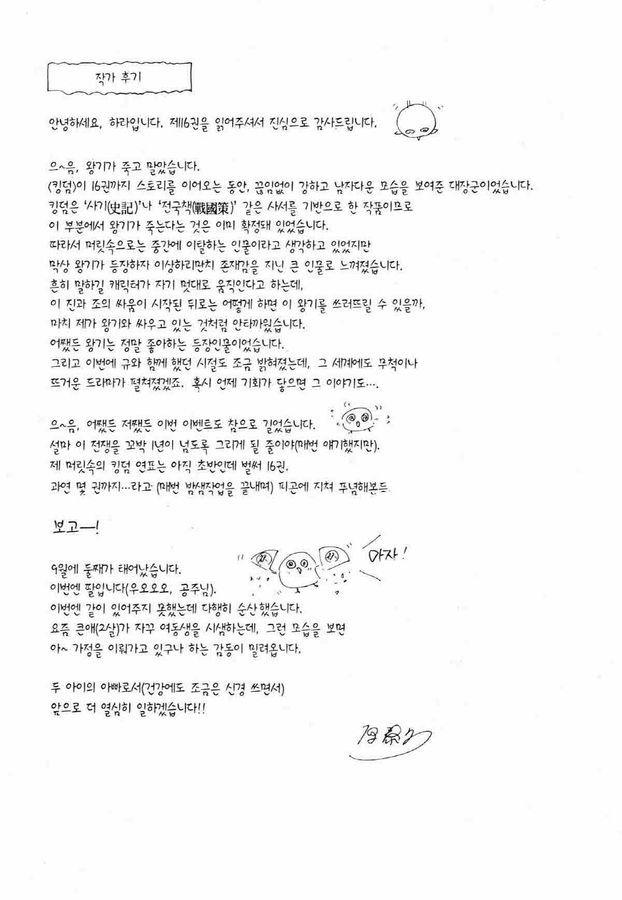 작가 후기
안녕하세요, 하라입니다. 제16권을 읽어주셔서 진심으로 감사드립니다.
으~음, 왕기가 죽고 말았습니다.
(킹덤)이 16권까지 스토리를 이어오는 동안, 끊임없이 강하고 남자다운 모습을 보여준 대장군이었습니다.
킹덤은 '사기(史記)'나 '전국책(戰國策)' 같은 사서를 기반으로 한 작품이므로
이 부분에서 왕기가 죽는다는 것은 이미 확정돼 있었습니다.
따라서 머릿속으로는 중간에 이탈하는 인물이라고 생각하고 있었지만
막상 왕기가 등장하자 이상하리만치 존재감을 지닌 큰 인물로 느껴졌습니다.
흔히 말하길 캐릭터가 자기 멋대로 움직인다고 하는데,
이 진과 조의 싸움이 시작된 뒤로는 어떻게 하면 이 왕기를 쓰러뜨릴 수 있을까,
마치 제가 왕기와 싸우고 있는 것처럼 안타까웠습니다.
어쨌든 왕기는 정말 좋아하는 등장인물이었습니다.
그리고 이번에 규와 함께 했던 시절도 조금 밝혀졌는데, 그 세계에도 무척이나
뜨거운 드라마가 펼쳐졌겠죠. 혹시 언제 기회가 닿으면 그 이야기도….
으~음, 어쨌든 저쨌든 이번 이벤트도 참으로 길었습니다.
설마 이 전쟁을 꼬박 1년이 넘도록 그리게 될 줄이야(매번 얘기했지만).
제 머릿속의 킹덤 연표는 아직 초반인데 벌써 16권.
과연 몇 권까지…라고 (매번 밤샘작업을 끝내며) 피곤에 지쳐 푸념해본듯
보고—!
마자!
9월에 둘째가 태어났습니다.
이번엔 딸입니다(우오오오, 공주님).
이번엔 같이 있어주지 못했는데 다행히 순산했습니다.
요즘 큰애(2살)가 자꾸 여동생을 시샘하는데, 그런 모습을 보면
아~ 가정을 이뤄가고 있구나 하는 감동이 밀려옵니다.
두 아이의 아빠로서(건강에도 조금은 신경 쓰면서)
앞으로 더 열심히 일하겠습니다!!